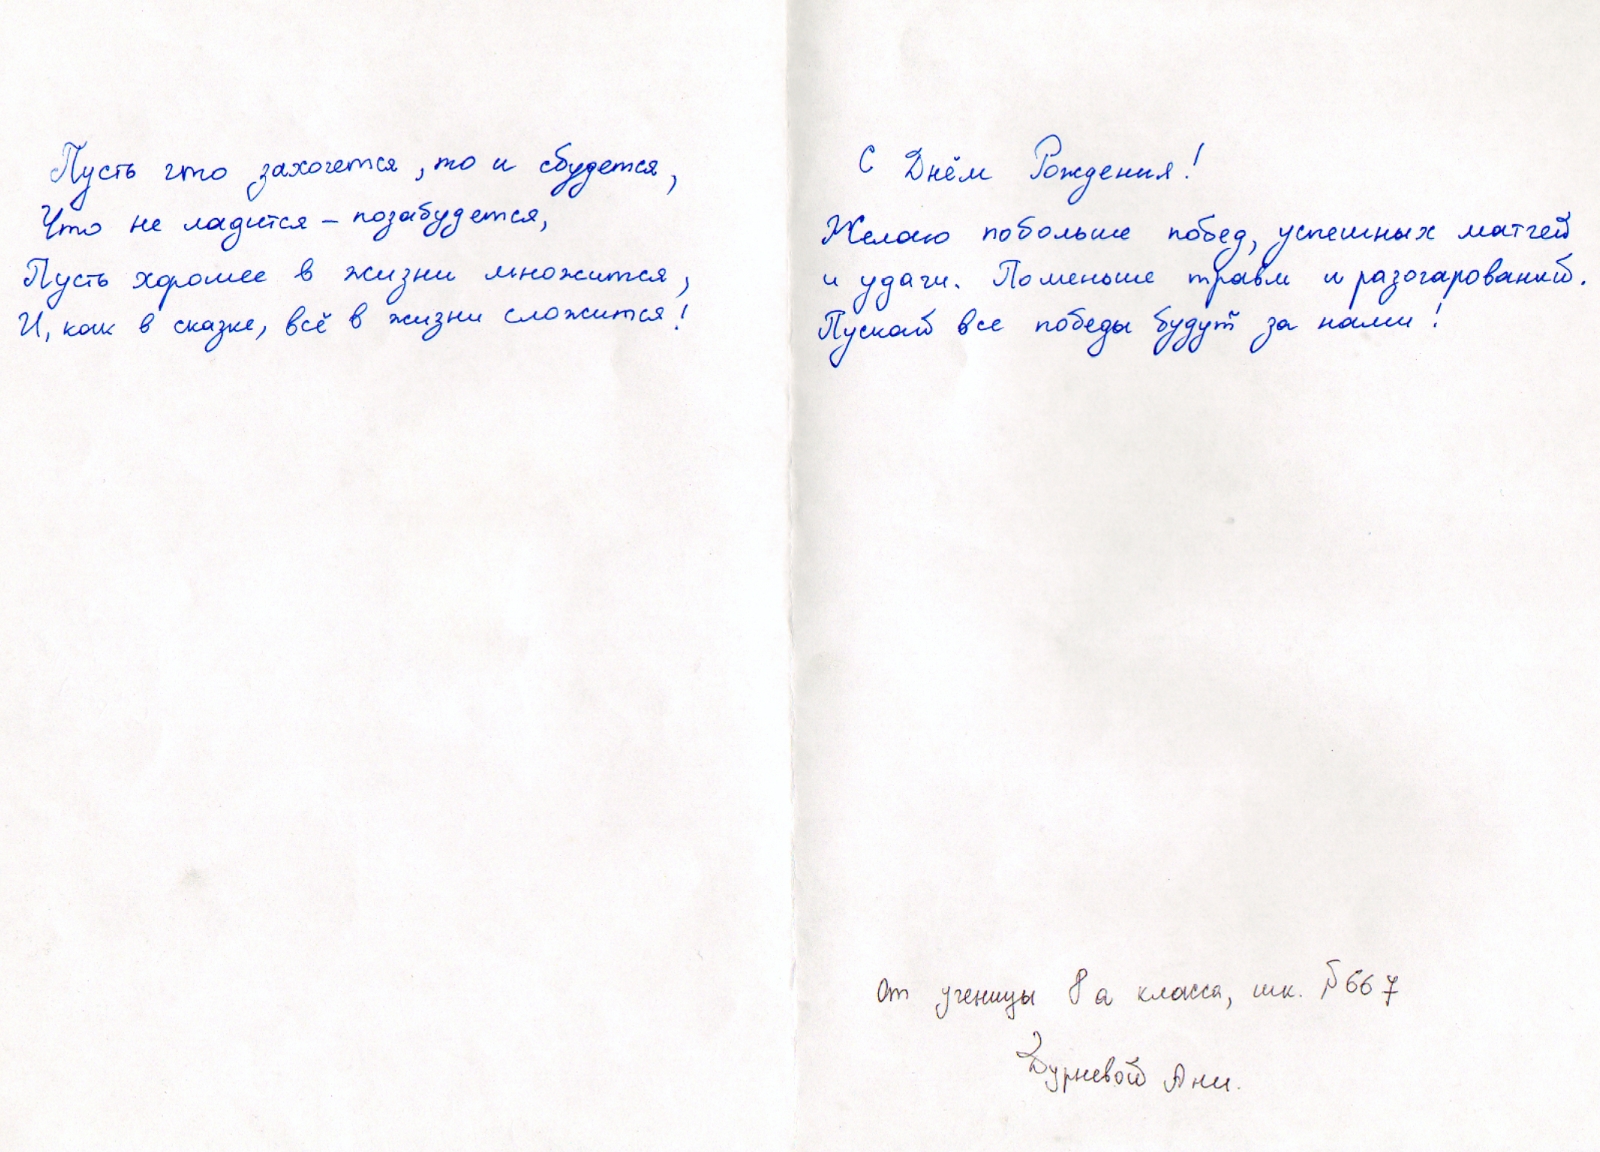 Пусть что захочется, то и сбудется,
Что не ладится – позабудется,
Пусть хорошее в жизни множится,
И, как в сказке, всё в жизни сложится!
С Днём Рождения!
Желаю побольше побед, успешных матчей
и удачи. Поменьше травм и разочарований.
Пускай все победы будут за нами!
От ученицы 8 а класса, шк. №667
Дурневой Ани.